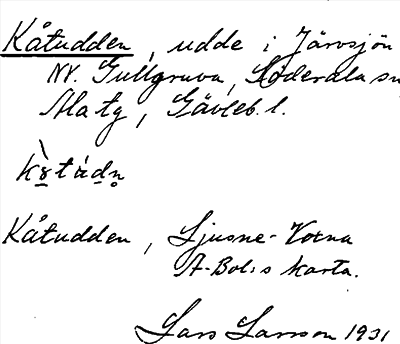 Kåtudden, udde i Järvsjön
NV. Gullgruva, Söderala sn
Ala tg, Gävleb. l.
Kåtudden, Ljusne-Voxna
A-Bol:s karta.
Lars Larsson 1931